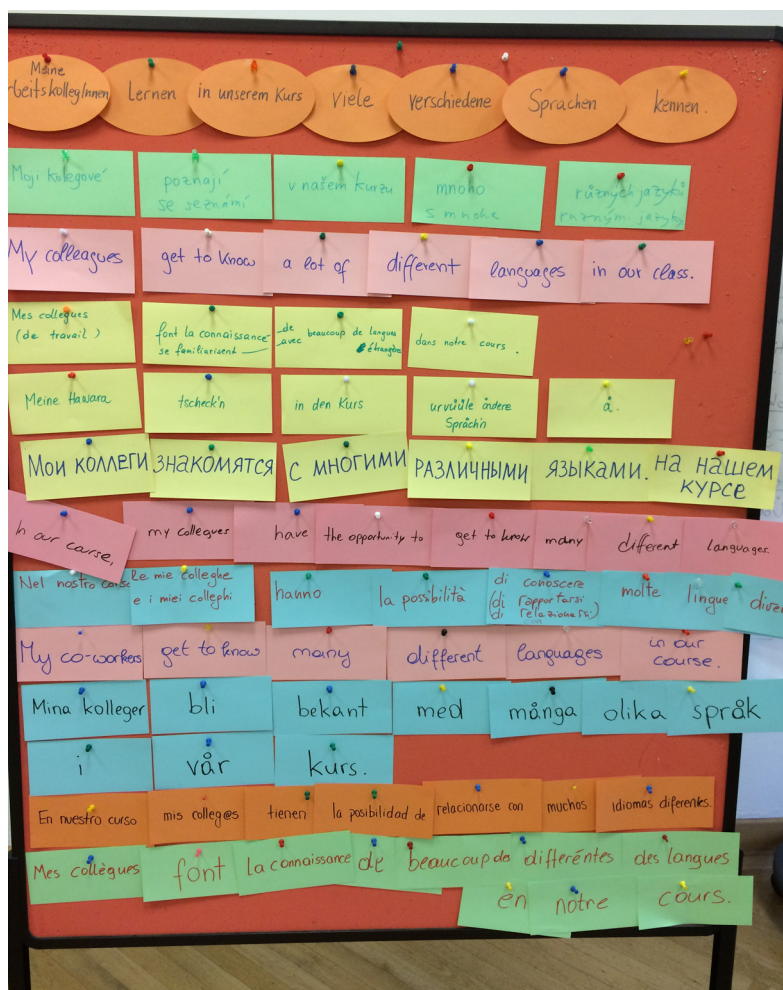 Meine
rbeitskollegInnen Lernen in unserem Kurs viele verschiedene Sprachen kennen.
Moji kolegové poznají v našem kurzu mnoho různých jazyků
se seznámí s mnoha různými jazyky
My colleagues get to know a lot of different languages in our class.
Mes collegues font la connaissance de beaucoup de langues dans notre cours.
(de travail) se familiarisent avec étrangère
Meine Hawara tscheck'n in den Kurs urvüüle åndere å.
Språch'n
Мои коллеги знакомятся с многими различными языками. на нашем
курсе
n our course, my collegues have the opportunity to get to know many different languages.
Nel nostro corso le mie colleghe hanno la possibilità di conoscere molte lingue diver
e i miei colleghi (di rapportarsi
di relazionarsi)
My co-workers get to know many different languages in our
course.
Mina kolleger bli bekant med många olika språk
i vår kurs.
En nuestro curso mis colleg@s tienen la posibilidad de relacionarse con muchos idiomas diferentes.
Mes collègues font la connaissance de beaucoup de différéntes des langues
en notre cours.